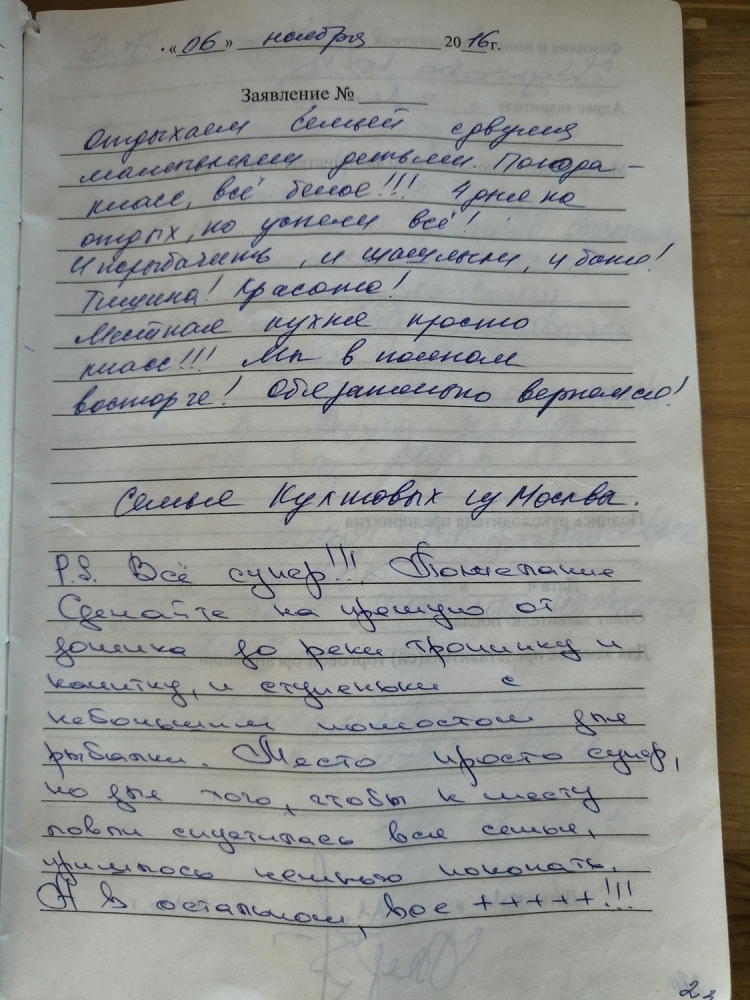 «06» ноября 2016 г.
Заявление №
Отдыхаем семьёй с двумя
маленькими детьми. Погода –
класс, всё белое!!! 4 дня на
отдых, но успели всё!
И порыбачить, и шашлыки, и баня!
Тишина! Красота!
Местная кухня просто
класс!!! Мы в полном
восторге! Обязательно вернемся!
Семья из Москва.
P.S. Всё супер!!! Пожелание
Сделайте на прямую от
домика до реки тропинку и
калитку, и ступеньки с
небольшим помостом для
рыбалки. Место просто супер,
но для того, чтобы к месту
ловли спустилась вся семья,
пришлось немного покопать.
А в остальном, все +++++!!!